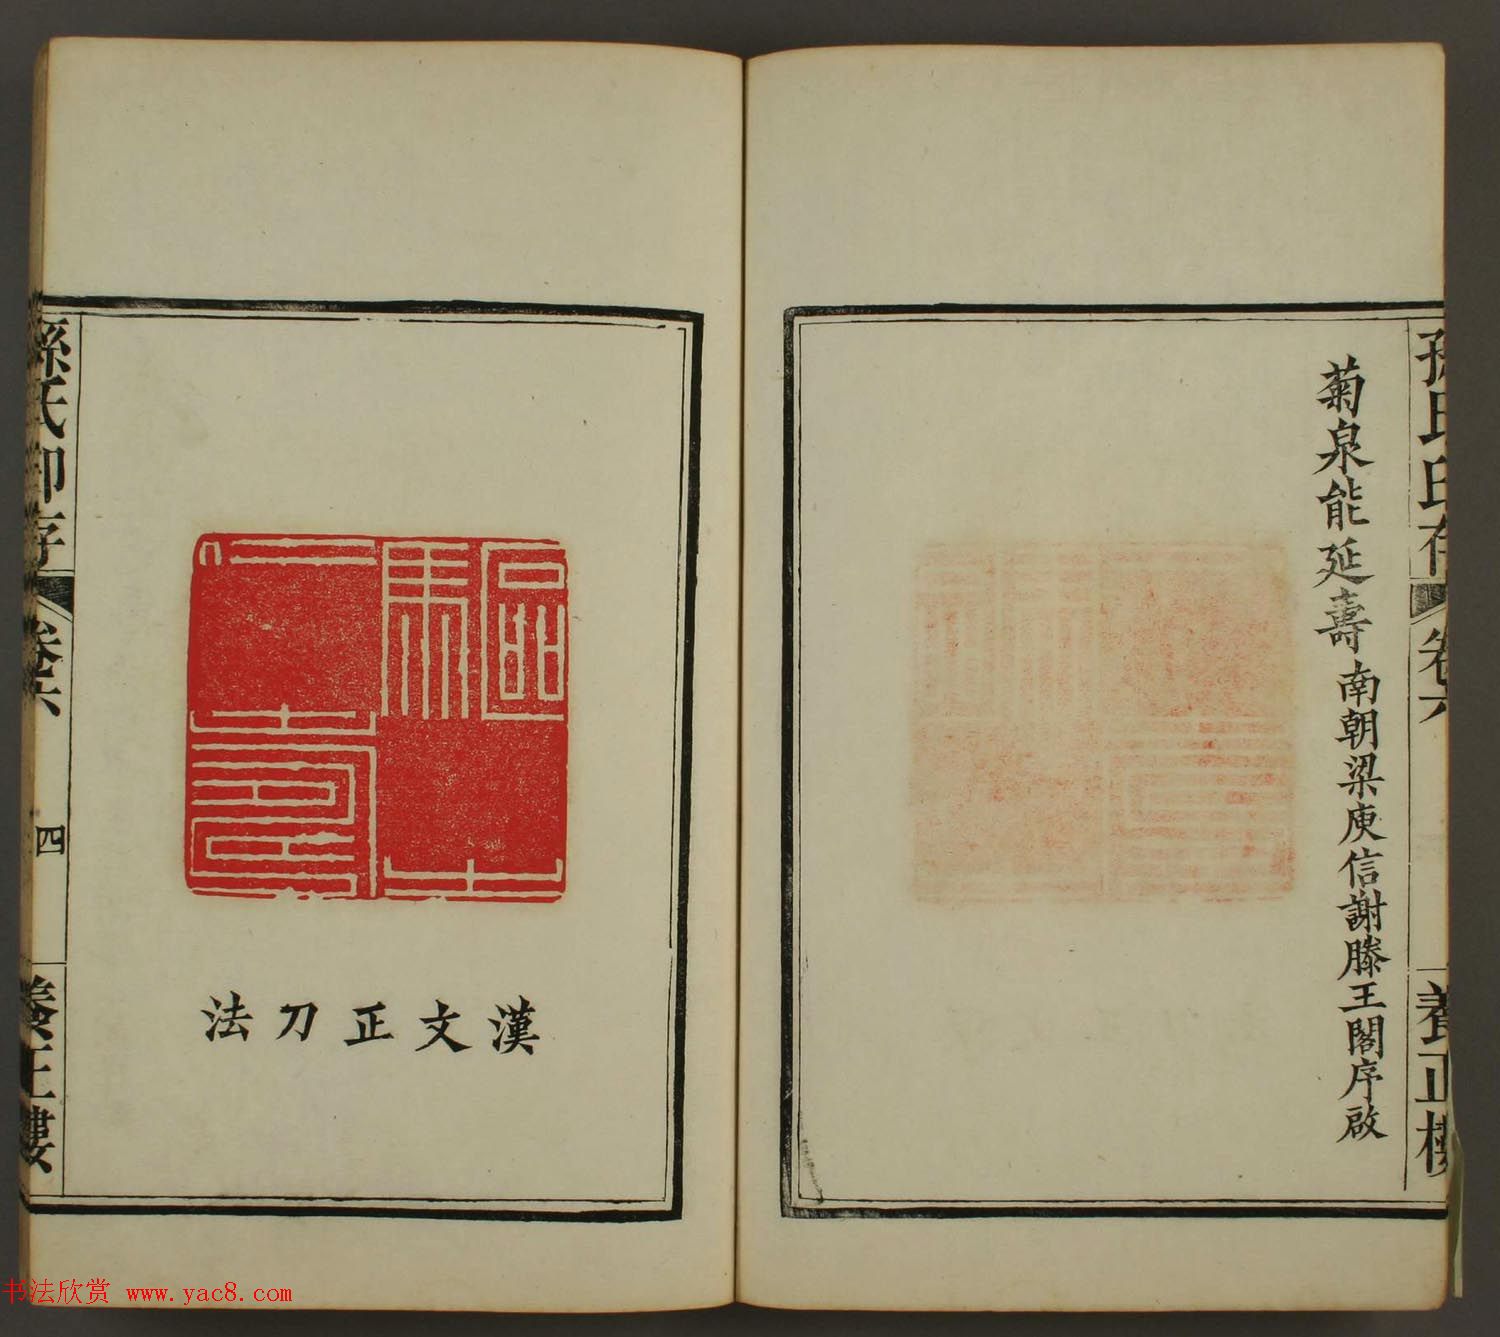 孫氏印存 卷六 養正樓
菊泉能延壽 南朝梁庾信謝滕王閣序啟
漢文正刀法
孫氏印存 卷六 四 養正樓
书法欣赏 www.yac8.com